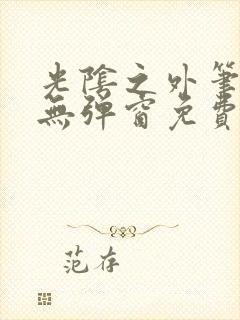 光陰之外筆
無彈窗免費
范存